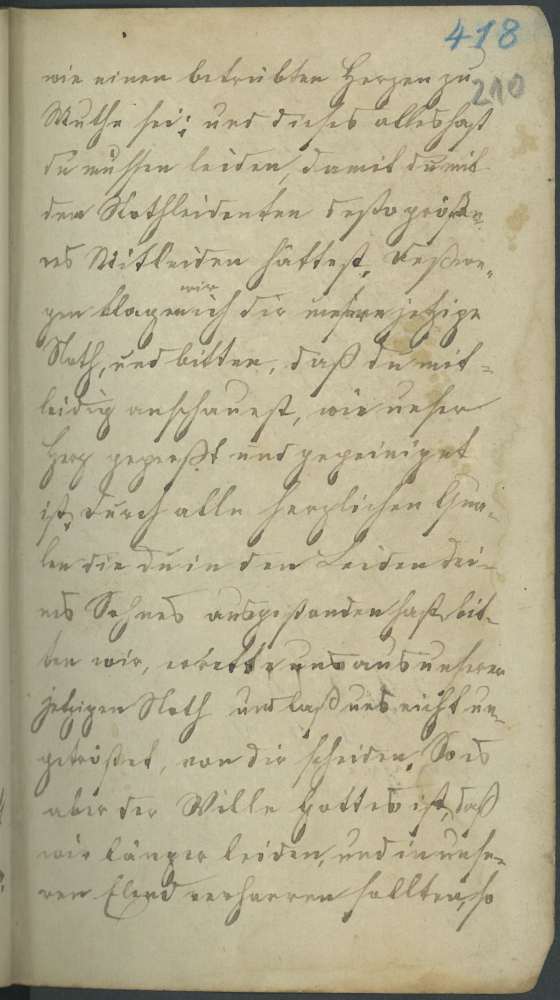 418
210
wie einen betrübten Herzen zu
Muthe sei; und dieses alles hast
du müssen leiden, damit du mit
den Nothleidenten desto größe-
res Mitleiden hättest, deßwe-
wir
gen klagen ich dir unsere jetzige
Noth, und bitten, daß du mit-
leidig anschauest, wie unser
Herz gepreßt und gepeiniget
ist, durch alle herzlichen Qua-
len die du in den Leiden dei-
nes Sohnes ausgestanden hast, bit-
ten wir, errette uns aus unserer
jetzigen Noth und laß uns nicht un-
getröstet, von dir scheiden, So es
aber der Wille Gottes ist, daß
wir länger leiden, und in unse-
ren Elend verharren sollten, so